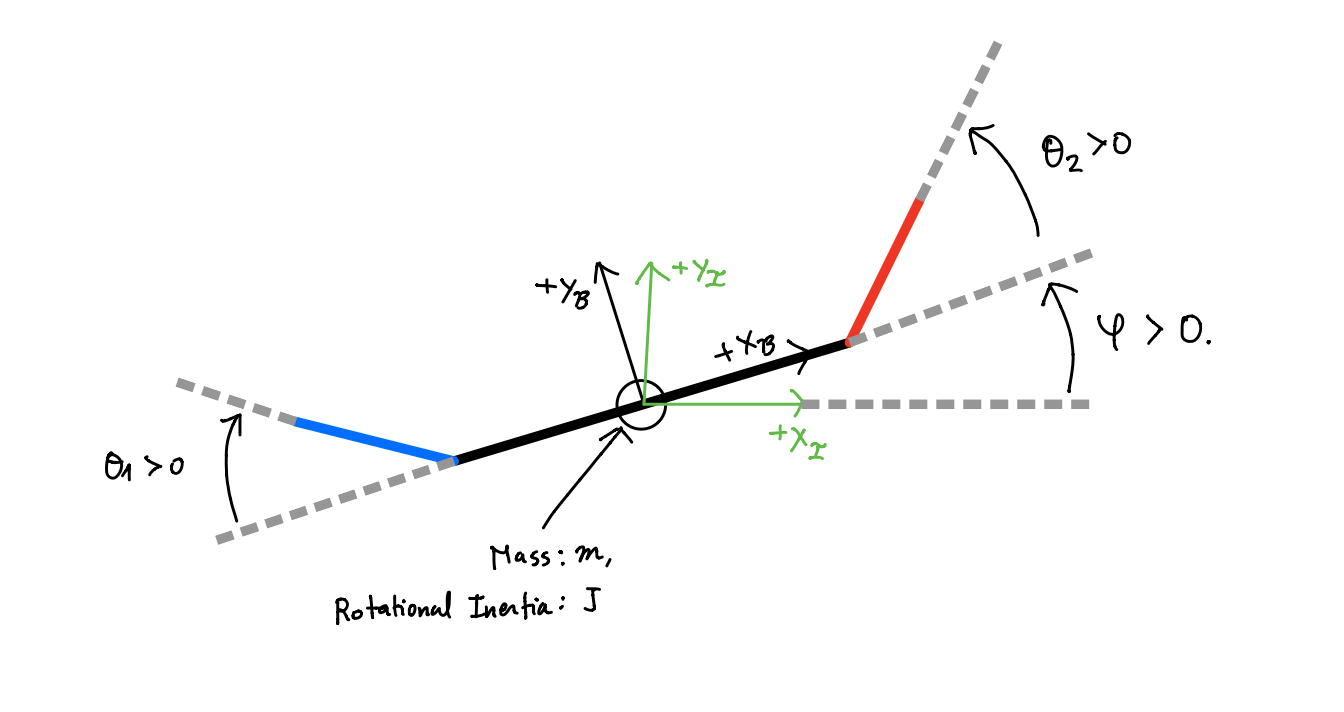 θ₂>0
+Y_B
+Y_I
+X_B
φ > 0.
+X_I
θ₁>0
Mass: m,
Rotational Inertia: J